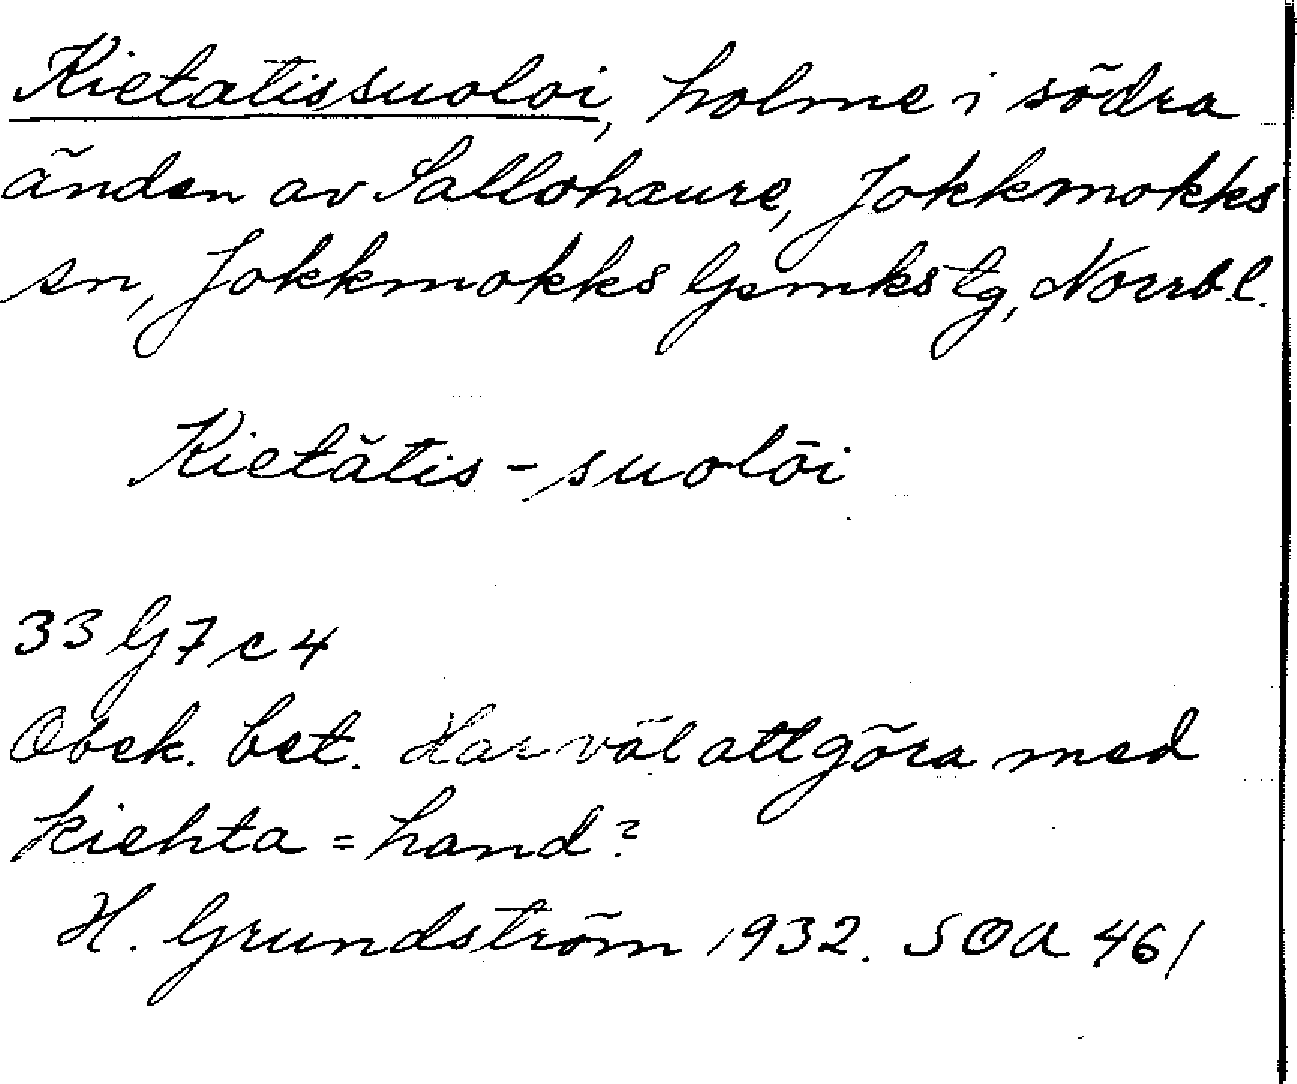 Kietatissuoloi, holme i södra
änden av Sallohaure, Jokkmokks
sn, Jokkmokks lpmkstg, Norrb. l.
Kietătis-suolōi
33 G 7 c 4
Obek. bet. Har väl att göra med
kiehta = hand?
H. Grundström 1932. SOA 461